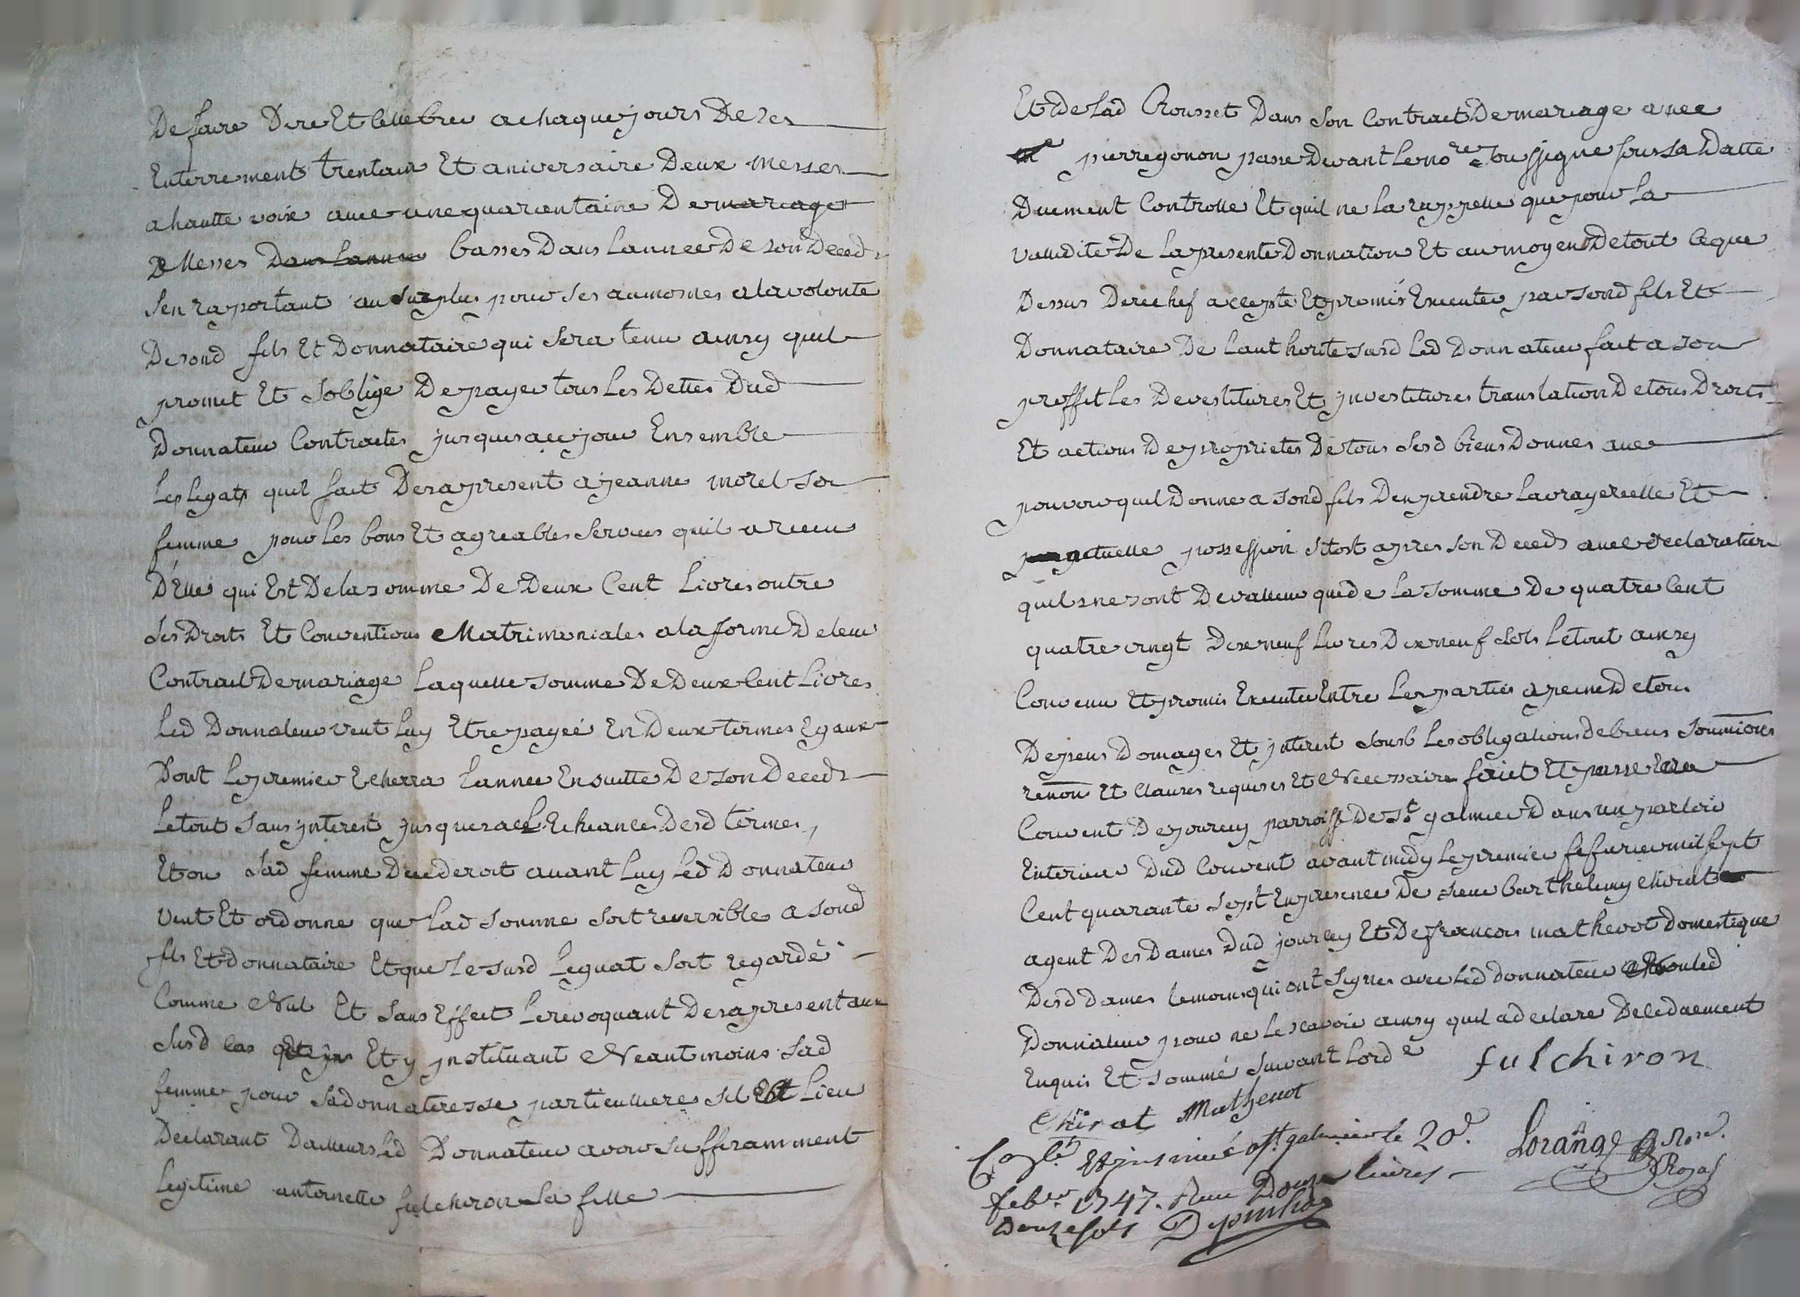 De faire Dire Et Cellebrer a chaque jours De ses
Enterrements trentain Et aniversaire Deux messes
a hautte voix avec une quarentaine De mariage
Messes Dans Lannee basses Dans Lannee De son Deceds
Sen raportant au surplus pour ses aumosnes a la volonte
De sond fils Et Donnataire qui sera tenu ainsy quil
promet Et Soblige De payer tous Les Dettes Dud
Donnateur Contractes jusques a ce jour Ensemble
Les legats quil fait Des a present a jeanne morel sa
femme pour Les bons Et agreables services quil a receu
D'Elle qui Est De la somme De Deux Cent Livres outre
Ses Droits Et Conventions Matrimoniales a la forme De leur
Contract De mariage Laquelle somme De Deux Cent Livres
Led Donnateur veut Luy Etre payeé En Deux termes Egaux
Dont Le premier Echerra Lannee En suitte De son Deceds
Le tout sans jnterest jusques a Lecheances Desd termes,
Et ou Lad femme Decederoit avant Luy Led Donnateur
veut Et ordonne que Lad somme soit reversible a sond
fils Et Donnataire Et que Le susd Leguat soit regardé
Comme Nul Et sans Effect Le revoquant Des a present au
susd cas Et y jnstituant Neantmoins sad
femme pour sa donnateresse particulliere sil Est Lieu
Declarant D'ailleurs Led Donnateur avoir suffisamment
Legitime anternette fulchiron sa fille
Et De Lad Crousset Dans son Contract De mariage avec
pierre gonon passe Devant Le nore soussigne sous sa Datte
Duement Controlle Et quil ne la rappelle que pour la
vallidite De La presente Donnation Et au moyen De tout Ce que
Dessus Derechef accepte Et promis Executer par sond fils Et
Donnataire De Lauthorite susd Led Donnateur fait a son
proffit Les Devestitures Et jnvestitures translation De tous Droits
Et actions De proprietes De tous sesd biens Donnes avec
pouvoir quil Donne a sond fils Den prendre La vraye reelle Et
actuelle possession sitost apres son Deceds avec declaration
quils ne sont De valleur que de La somme De quatre Cent
quatre vingt Dixneuf Livres Dixneuf sols Le tout ainsy
Convenu Et promis Executer Entre Les parties a peine De tous
Depens Domages Et jnterest sous Les obligations De biens soumions
renon Et Clauses requises Et Necessaires faict Et passe au
Couvent De jourcey parroisse De St galmier Dans un parloir
Exterieur Dud Couvent avant midy Le premier fefvrier mil sept
Cent quarante sept En presence De sieur barthelemy chirat
agent Des Dames Dud jourcey Et De francois mathevot Domestique
Desd dames temoins qui ont signes avec Led donnataire Non led
Donnateur pour ne Le scavoir ainsy quil a declare De ce duement
Enquis Et sommé suivant Lorde
fulchiron
Chirat Mathevot
Conlé Et jnsinué a st galmier le 20e.
Lorange Nore. Royal
feber 1747. Receu Douze livres
Douze sols Depinhac